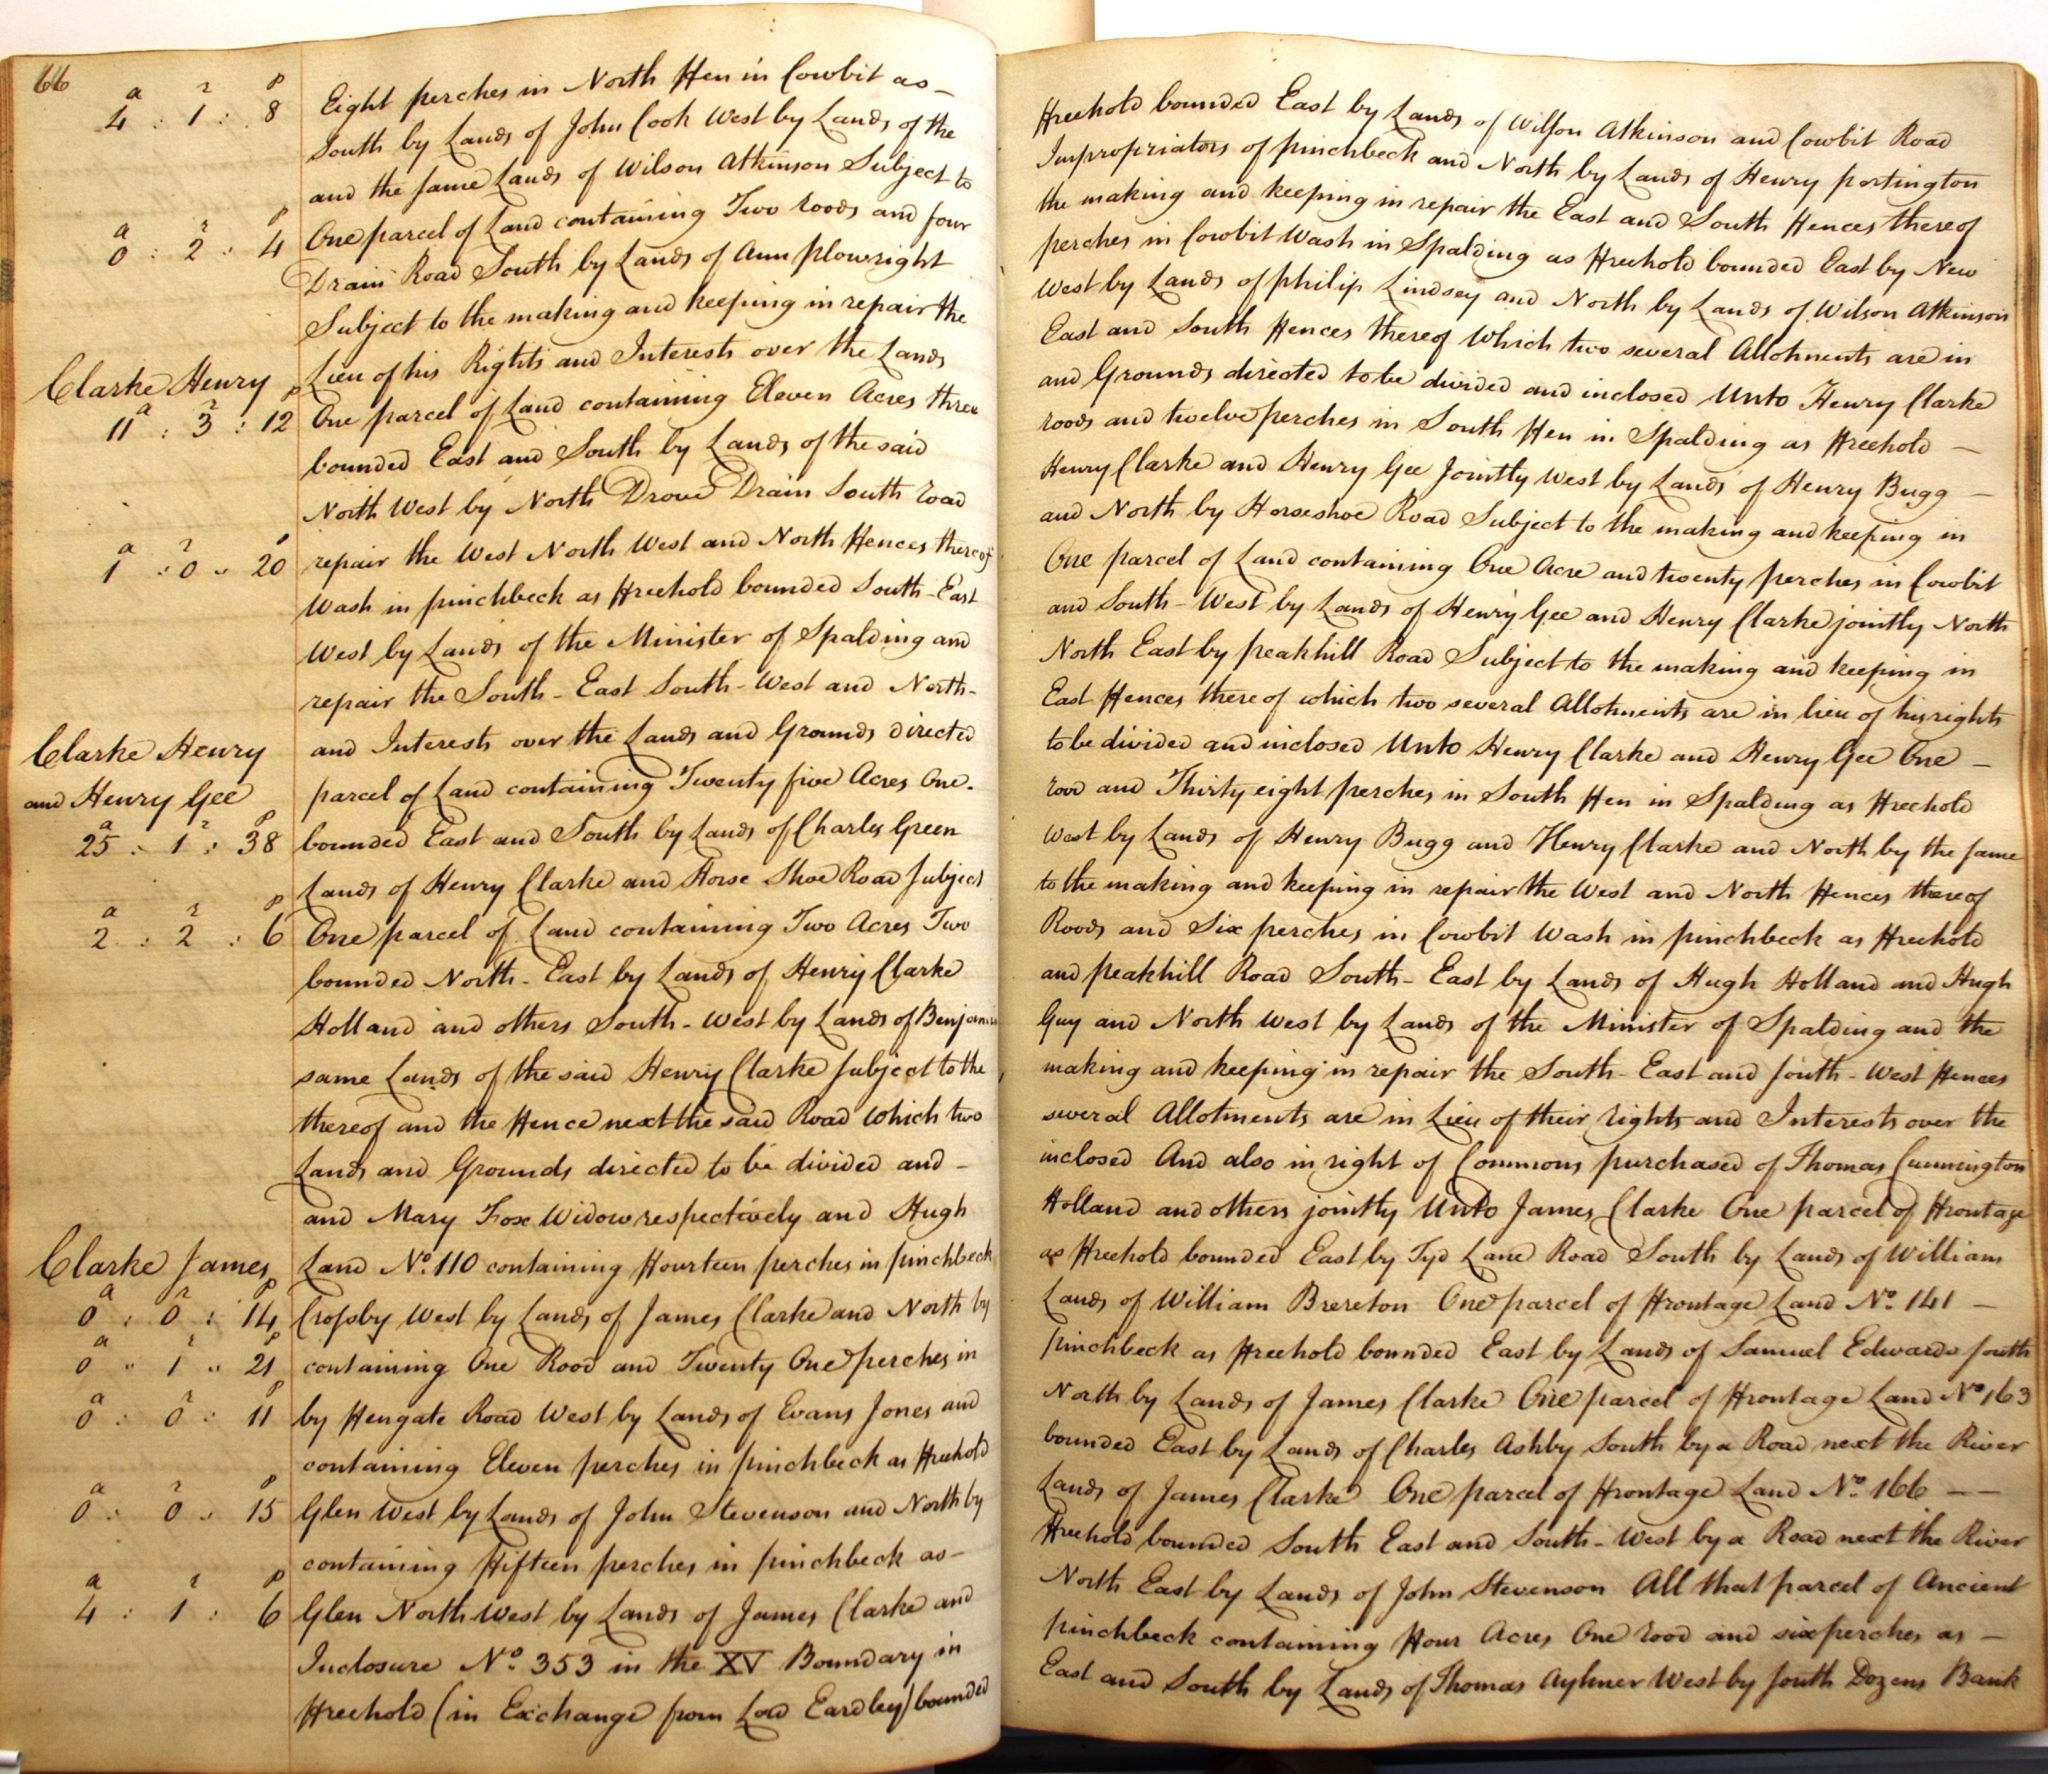 66
a r p
4 : 1 : 8
Eight perches in North Fen in Cowbit as - Freehold bounded East by Lands of Wilson Atkinson and Cowbit Road
South by Lands of John Cook West by Lands of the Impropriators of pinchbeck and North by Lands of Henry portington
and the same Lands of Wilson Atkinson Subject to the making and keeping in repair the East and South Fences thereof
a r p
0 : 2 : 4
One parcel of Land containing Two roods and four perches in Cowbit Wash in Spalding as Freehold bounded East by New
Drain Road South by Lands of Ann plowright West by Lands of philip Lindsey and North by Lands of Wilson Atkinson
Subject to the making and keeping in repair the East and South Fences thereof Which two several Allotments are in
Lieu of his Rights and Interests over the Lands and Grounds directed to be divided and inclosed Unto Henry Clarke
Clarke Henry
a r p
11 : 3 : 12
One parcel of Land containing Eleven Acres three roods and twelve perches in South Fen in Spalding as Freehold -
bounded East and South by Lands of the said Henry Clarke and Henry Gee Jointly West by Lands of Henry Bugg -
North West by North Drove Drain South road and North by Horseshoe Road Subject to the making and keeping in
a r p
1 : 0 " 20
repair the West North West and North Fences thereof One parcel of Land containing One Acre and twenty perches in Cowbit
Wash in pinchbeck as Freehold bounded South-East and South-West by Lands of Henry Gee and Henry Clarke jointly North
West by Lands of the Minister of Spalding and North East by peakhill Road Subject to the making and keeping in
repair the South-East South-West and North- East Fences thereof which two several Allotments are in lieu of his rights
and Interests over the Lands and Grounds directed to be divided and inclosed Unto Henry Clarke and Henry Gee One -
Clarke Henry
and Henry Gee
a r p
25 : 1 : 38
parcel of Land containing Twenty five Acres One - rood and Thirty eight perches in South Fen in Spalding as Freehold
bounded East and South by Lands of Charles Green West by Lands of Henry Bugg and Henry Clarke and North by the same
Lands of Henry Clarke and Horse Shoe Road subject to the making and keeping in repair the West and North Fences thereof
a r p
2 : 2 : 6
One parcel of Land containing Two Acres Two Roods and Six perches in Cowbit Wash in pinchbeck as Freehold
bounded North-East by Lands of Henry Clarke and peakhill Road South-East by Lands of Hugh Holland and Hugh
Holland and others South-West by Lands of Benjamin Guy and North West by Lands of the Minister of Spalding and the
same Lands of the said Henry Clarke subject to the making and keeping in repair the South-East and South-West Fences
thereof and the Fence next the said Road Which two several Allotments are in Lieu of their rights and Interests over the
Lands and Grounds directed to be divided and - inclosed And also in right of Commons purchased of Thomas Cunnington
and Mary Fox Widow respectively and Hugh Holland and others jointly Unto James Clarke One parcel of Frontage
Clarke James
a r p
0 : 0 : 14
Land No. 110 containing Fourteen perches in pinchbeck as Freehold bounded East by Tyd Lane Road South by Lands of William
Cropsby West by Lands of James Clarke and North by Lands of William Brereton One parcel of Frontage Land No. 141 -
a r p
0 " 1 " 21
containing One Rood and Twenty One perches in pinchbeck as Freehold bounded East by Lands of Samuel Edwards South
a r p
0 : 0 : 11
by Fengate Road West by Lands of Evans Jones and North by Lands of James Clarke One parcel of Frontage Land No. 163
containing Eleven perches in pinchbeck as Freehold bounded East by Lands of Charles Ashby South by a Road next the River
a r p
0 : 0 : 15
Glen West by Lands of John Stevenson and North by Lands of James Clarke One parcel of Frontage Land No. 166 - -
containing Fifteen perches in pinchbeck as - Freehold bounded South East and South-West by a Road next the River
a r p
4 : 1 : 6
Glen North West by Lands of James Clarke and North East by Lands of John Stevenson All that parcel of Ancient
Inclosure No. 353 in the XV Boundary in pinchbeck containing Four Acres One rood and six perches as -
Freehold (in Exchange from Lord Eardley) bounded East and South by Lands of Thomas Aylmer West by South Dozens Bank